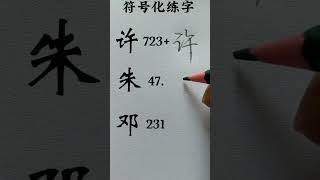 符号化练字
许 723+ 许
朱 47.
邓 231